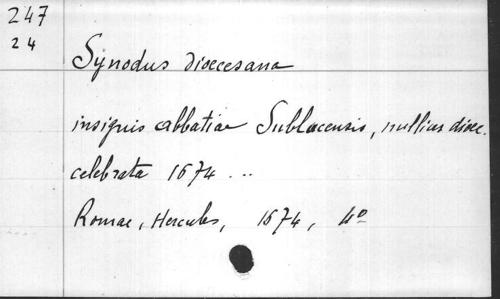 247
24
Synodus dioecesana
insignis abbatiae Sublacensis, nullius dioec.
celebrata 1674 ...
Romae, Hercules, 1674, 4º